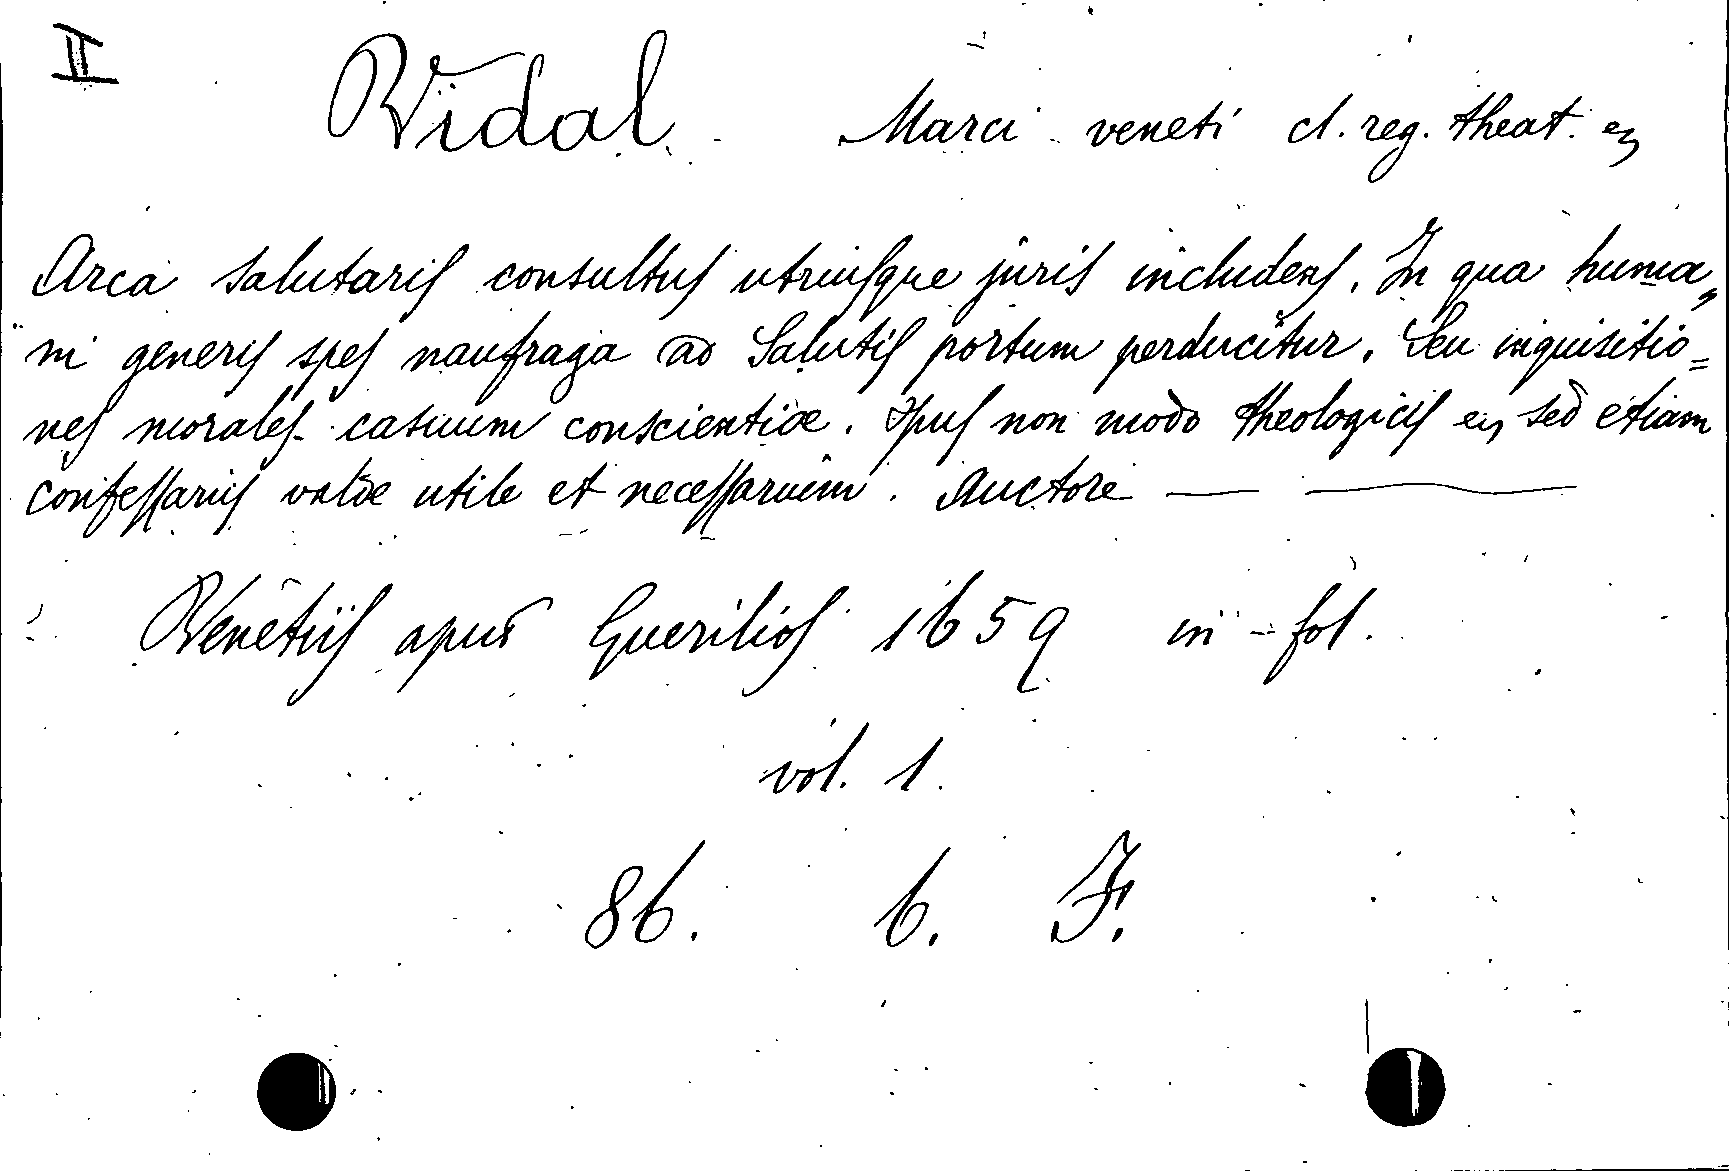 II
Vidal Marci veneti cl. reg. theat. etc
Arca salutaris consultus utriusque juris includens. In qua huma„
ni generis spes naufraga ad Salutis portum perducitur. Seu inquisitio=
nes morales casuum conscientiæ. Opus non modo theologicis etc sed etiam
confessariis valde utile et necessarium. Auctore — —
Venetiis apud Guerilios 1659 in-fol.
vol. 1.
86. 6. F.